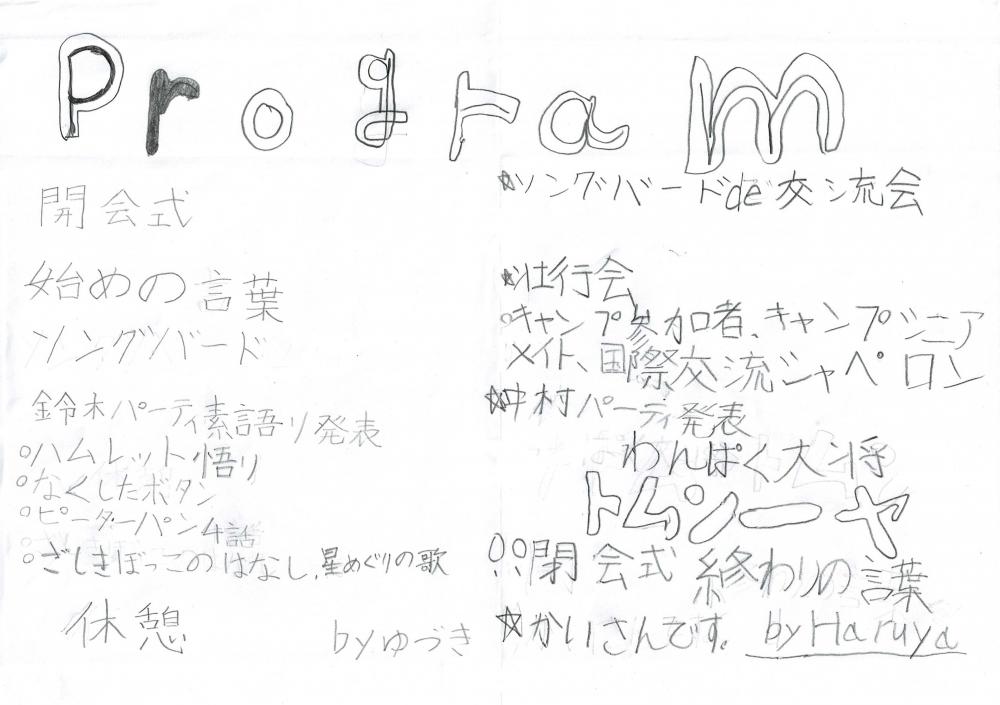 Program
開会式
始めの言葉
ソングバード
鈴木パーティ素語り発表
○ハムレット悟り
○なくしたボタン
○ピーターパン4話
○ざしきぼっこのはなし,星めぐりの歌
休憩
byゆづき
☆ソングバードde交流会
☆壮行会
○キャンプ参加者、キャンプシニア
メイト、国際交流シャペロン
☆中村パーティ発表
わんぱく大将
トムソーヤ
閉会式 終わりの言葉
☆かいさんです。 byHaruya